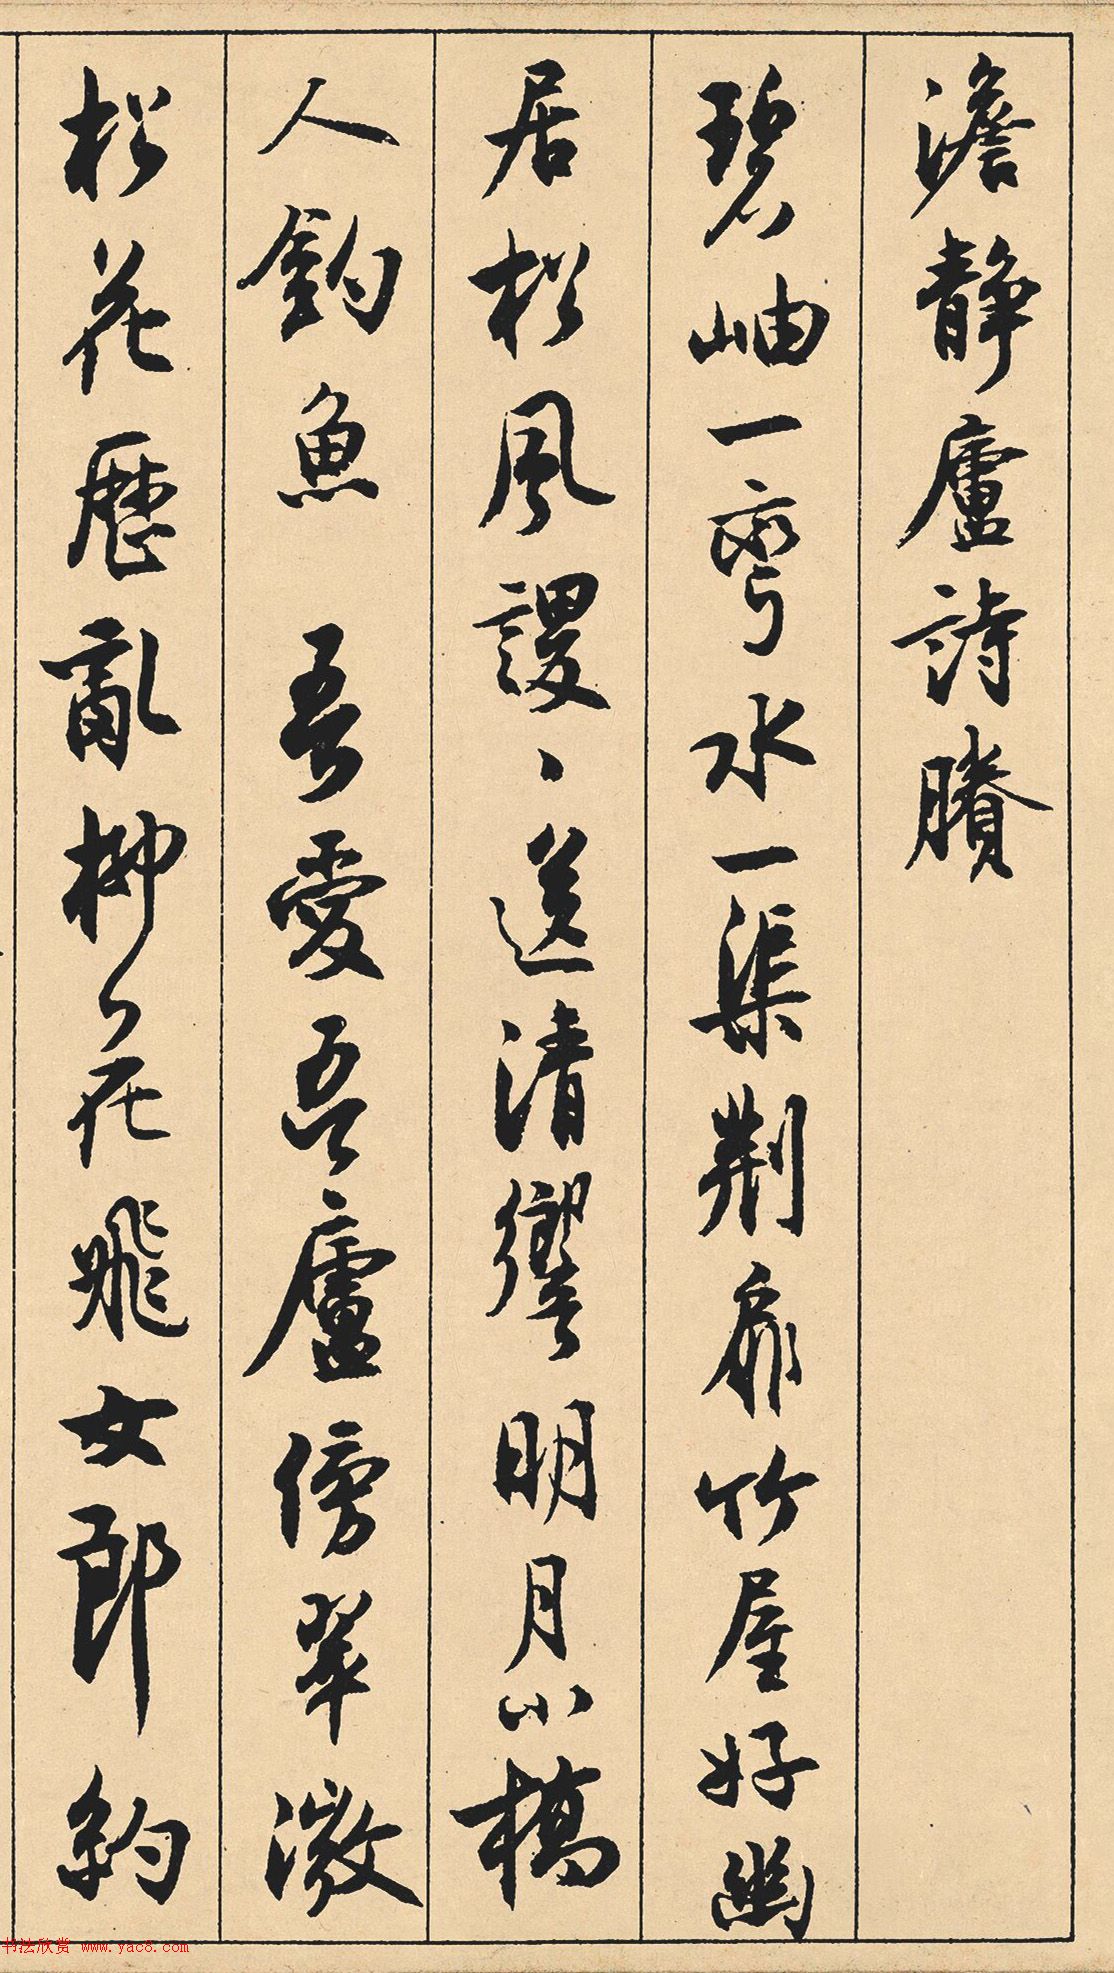 澹静廬詩賸
碧岫一彎水一渠荆扉竹屋好幽
居松風謖〻送清響明月小橋
人釣魚 吾愛吾廬傍翠微
松花歷亂柳花飛女郎約
书法欣赏 www.yac8.com